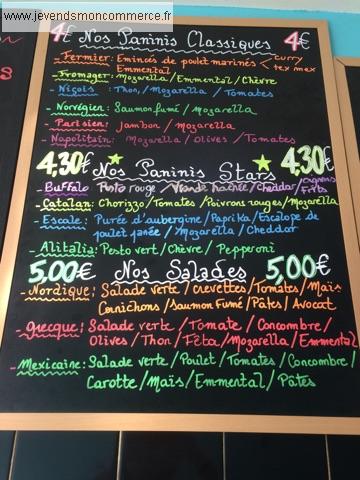 www.jevendsmoncommerce.fr
4€ Nos Paninis Classiques 4€
- Fermier: Emincés de poulet marinés < curry
Emmental tex mex
- Fromager: Mozarella / Emmental / Chèvre
- Niçois: Thon / Mozarella / Tomates
- Norvégien: Saumon fumé / Mozarella
- Parisien: Jambon / Mozarella
- Napolitain: Mozarella / Olives / Tomates
4,30€ Nos Paninis Stars 4,30€
- Buffalo: Pesto rouge / Viande hachée / Cheddar / oignons
frits
- Catalan: Chorizzo / Tomates / Poivrons rouges / Mozarella
- Escale: Purée d'aubergine / Paprika / Escalope de
poulet panée / Mozarella / Cheddar
- Alitalia: Pesto vert / Chèvre / Pepperoni
5,00€ Nos Salades 5,00€
- Nordique: Salade verte / crevettes / Tomates / Maïs
Cornichons / Saumon Fumé / Pâtes / Avocat
- Grecque: Salade verte / Tomate / Concombre /
Olives / Thon / Fêta / Mozarella / Emmental
- Mexicaine: Salade verte / Poulet / Tomates / Concombre /
Carotte / Maïs / Emmental / Pâtes